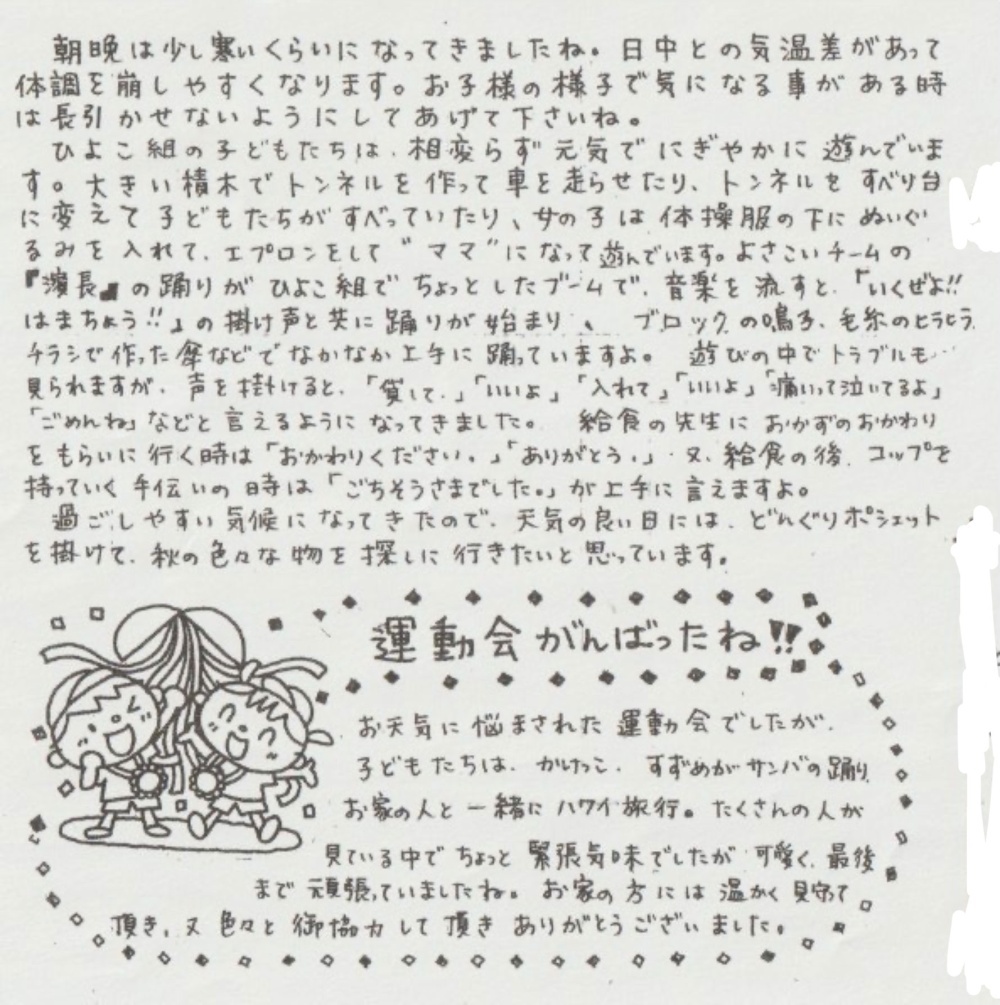 朝晩は少し寒いくらいになってきましたね。日中との気温差があって
体調を崩しやすくなります。お子様の様子で気になる事がある時
は長引かせないようにしてあげて下さいね。
ひよこ組の子どもたちは、相変らず元気でにぎやかに遊んでいま
す。大きい積木でトンネルを作って車を走らせたり、トンネルをすべり台
に変えて子どもたちがすべっていたり、女の子は体操服の下にぬいぐ
るみを入れて、エプロンをして“ママ”になって遊んでいます。よさこいチームの
『濱長』の踊りがひよこ組でちょっとしたブームで、音楽を流すと、「いくぜよ!!
はまちょう!!」の掛け声と共に踊りが始まり、ブロックの鳴子、毛糸のヒラヒラ、
チラシで作った傘などでなかなか上手に踊っていますよ。遊びの中でトラブルも
見られますが、声を掛けると、「貸して。」「いいよ」「入れて」「いいよ」「痛いって泣いてるよ」
「ごめんね」などと言えるようになってきました。給食の先生におかずのおかわり
をもらいに行く時は「おかわりください。」「ありがとう。」又、給食の後、コップを
持っていく手伝いの時は「ごちそうさまでした。」が上手に言えますよ。
過ごしやすい気候になってきたので、天気の良い日には、どんぐりポシェット
を掛けて、秋の色々な物を探しに行きたいと思っています。
運動会がんばったね!!
お天気に悩まされた運動会でしたが、
子どもたちは、かけっこ、すずめがサンバの踊り、
お家の人と一緒にハワイ旅行。たくさんの人が
見ている中でちょっと緊張気味でしたが可愛く、最後
まで頑張っていましたね。お家の方には温かく見守って
頂き、又色々と御協力して頂きありがとうございました。